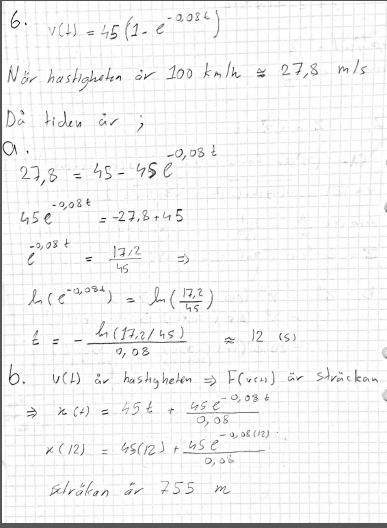 6. v(t) = 45(1 - e^{-0,08t})
När hastigheten är 100 km/h ≈ 27,8 m/s
Då tiden är ;
a.
27,8 = 45 - 45e^{-0,08t}
45e^{-0,08t} = -27,8+45
e^{-0,08t} = 17,2/45 ⇒
ln(e^{-0,08t}) = ln(17,2/45)
t = - ln(17,2/45)/0,08 ≈ 12 (s)
b. v(t) är hastigheten ⇒ F(v(t)) är sträckan
⇒ x(t) = 45t + 45e^{-0,08t}/0,08
x(12) = 45(12) + 45e^{-0,08(12)}/0,08
sträkan är 755 m